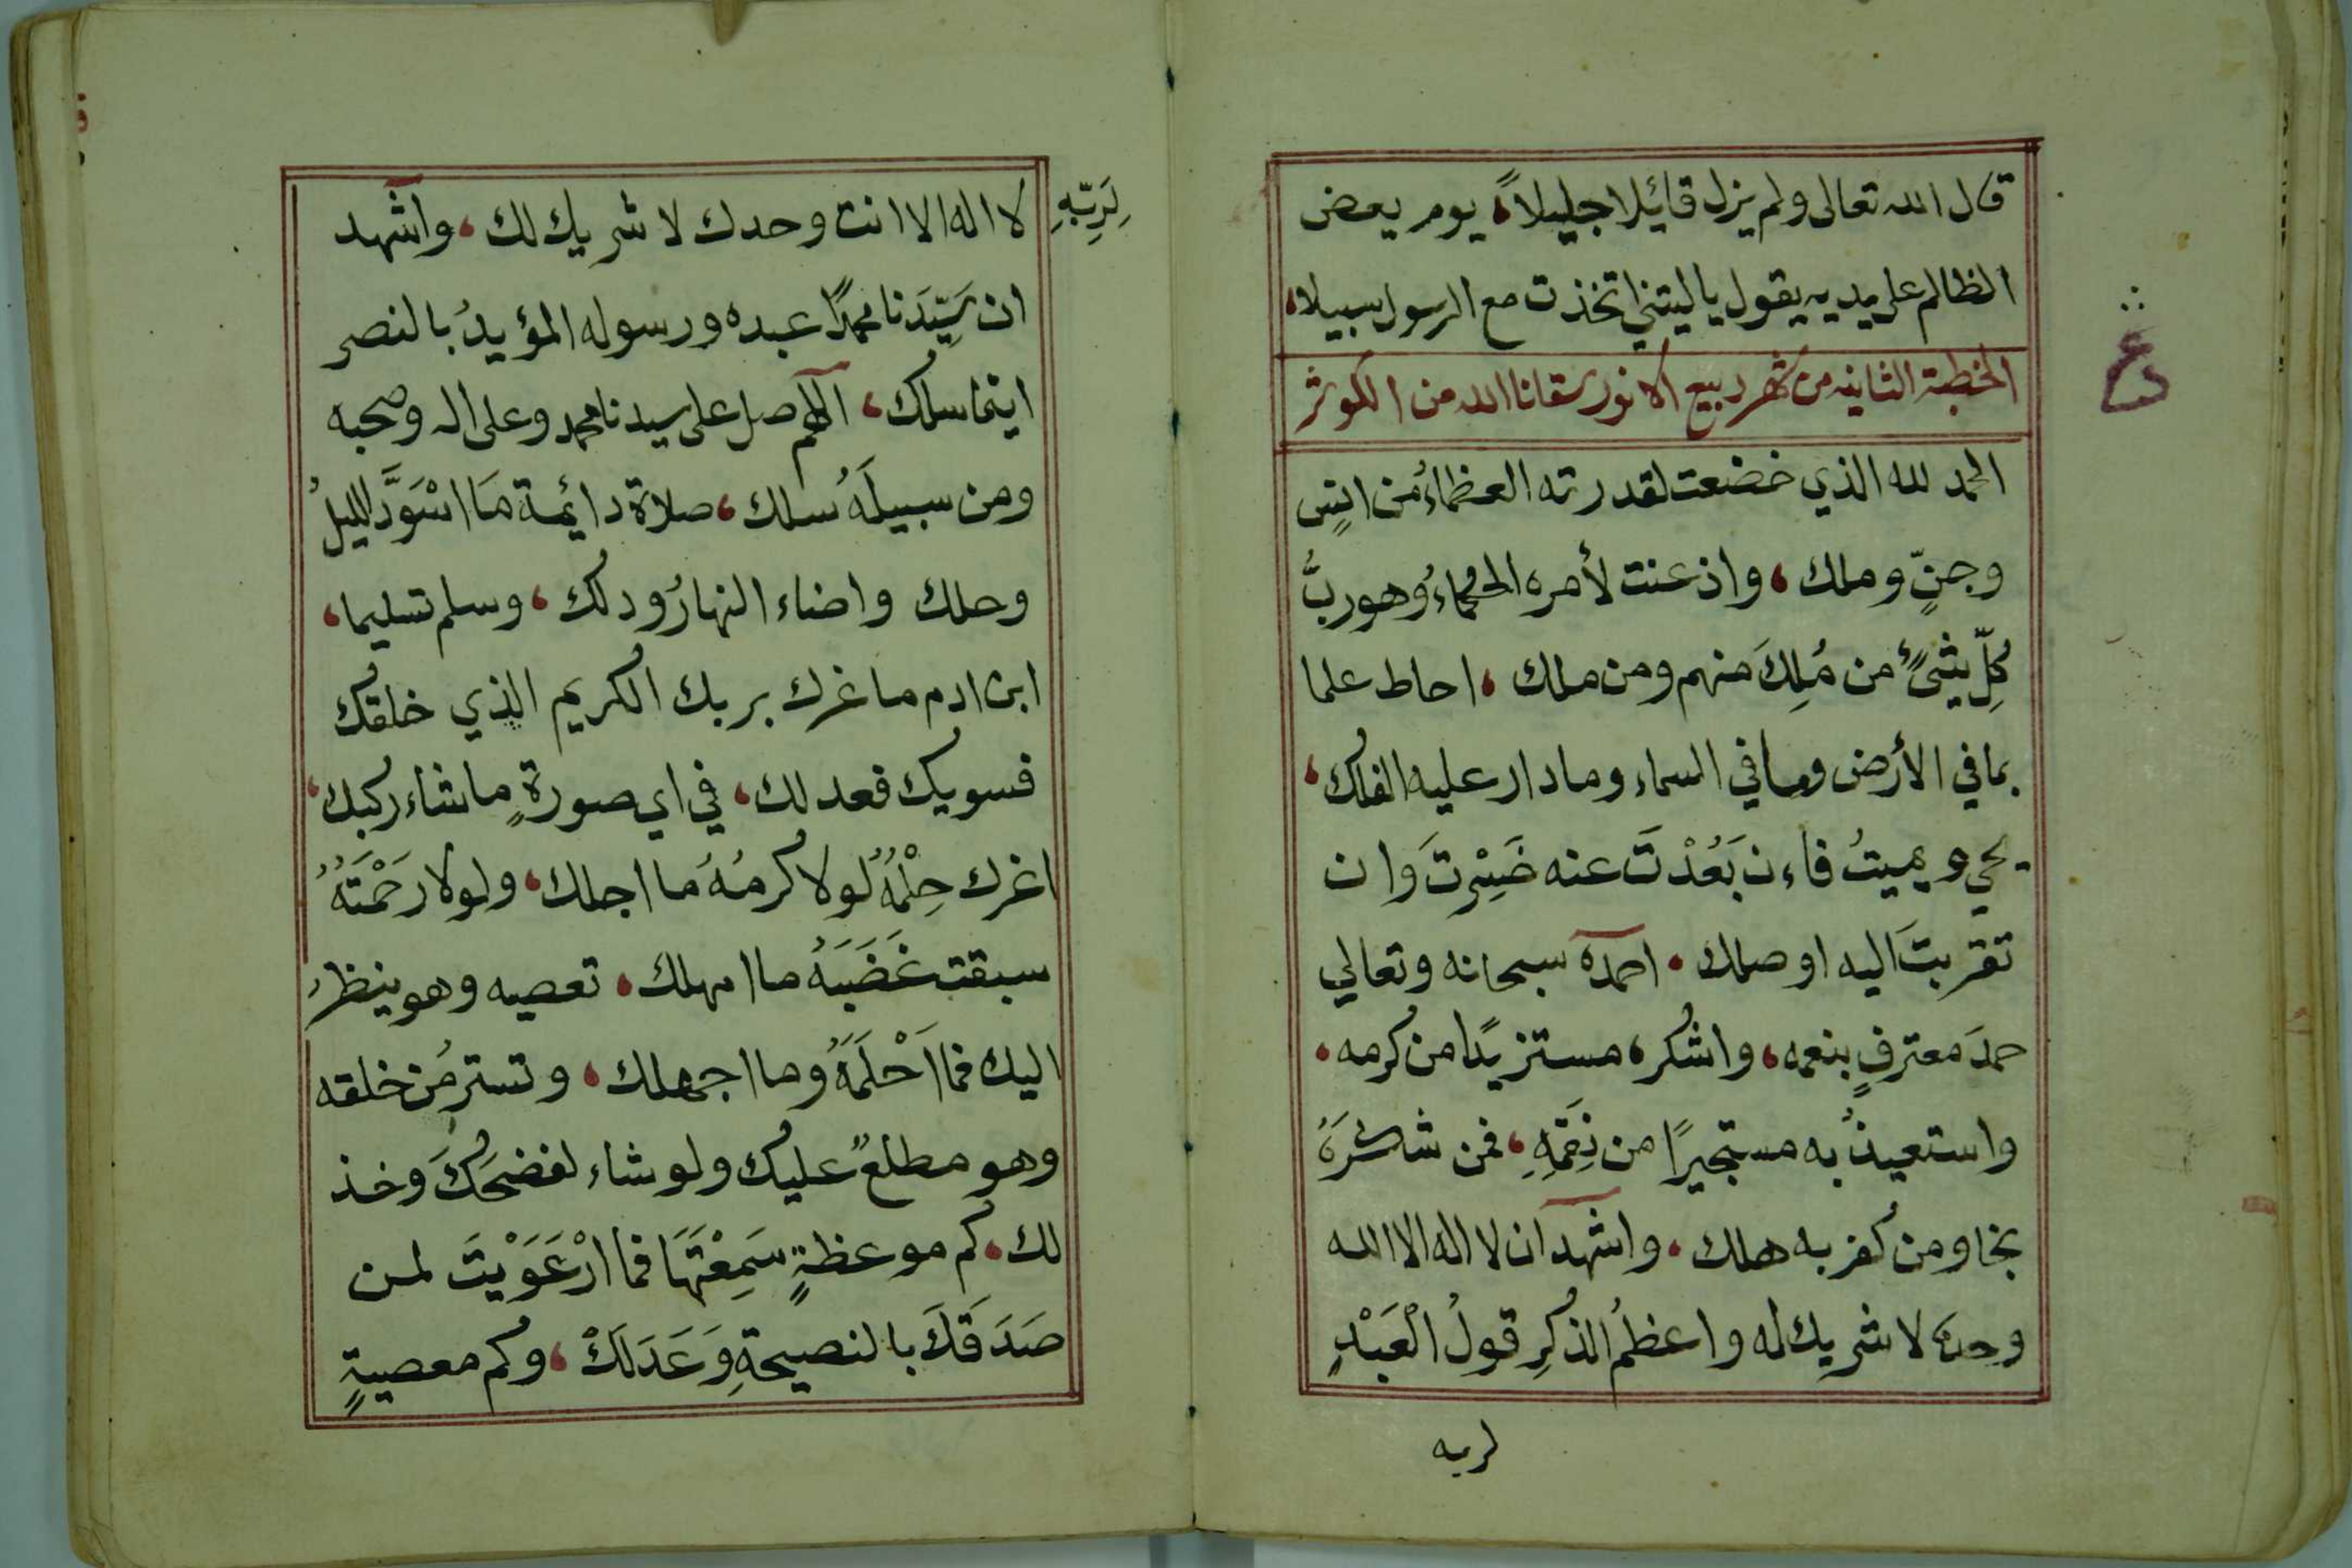 قال الله تعالى ولم يزل قائلا جليلاً، يوم يعض
الظالم على يديه يقول يا ليتني اتخذت مع الرسول سبيلا،
الخطبة الثانيه من شهر ربيع الانور سقانا الله من الكوثر
الحمد لله الذي خضعت لقدرته العظماءُ من انسٍ
وجنٍّ وملك، واذعنت لأمره الحكماءُ وهو ربُّ
كلِّ شيءٍ من مُلِكَ منهم ومن ملك، احاط علما
بما في الأرض وما في السماء وما دار عليه الفلك،
يحي ويميتُ فاءن بَعُدْتَ عنه خَسِرْتَ وان
تقربتَ اليه اوصلك، احمده سبحانه وتعالي
حمدَ معترفٍ بنعمه، واشكره مستزيدًا من كرمه،
واستعيذُ به مستجيرًا من نِقَمِهِ، فمن شكرَهُ
نجا ومن كفر به هلك، واشهد ان لا اله الا الله
وحده لا شريك له واعظمُ الذكرِ قولُ الْعَبْدِ
لربه
لِرَبِّهِ
لا اله الا انت وحدك لا شريك لك، واشهد
ان سَيِّدَنا محمدًا عبده ورسوله المؤيدُ بالنصر
اينما سلك، اللهم صل على سيدنا محمد وعلى اله وصحبه
ومن سبيلَهُ سلك، صلاة دائمة مَا اسْوَدَّ الليلُ
وحلك واضاء النهارُ ودلك، وسلم تسليما،
ابن ادم ما غرك بربك الكريم الذي خلقك
فسويك فعدلك، في اي صورةٍ ما شاء ركبك،
اغرك حِلْمُهُ لولا كرمُهُ ما اجلك، ولولا رَحْمَتَهُ
سبقت غَضَبَهُ ما امهلك، تعصيه وهو ينظر
اليك فما اَحْلَمَهُ وما اجهلك، وتستر من خلقه
وهو مطلعٌ عليك ولو شاء لفضحَكَ وخذ
لك، كم موعظةٍ سَمِعْتَهَا فما ارْعَوَيْتَ لمن
صَدَقَكَ بالنصيحةِ وَعَدَلَكْ، وكم معصيةٍ